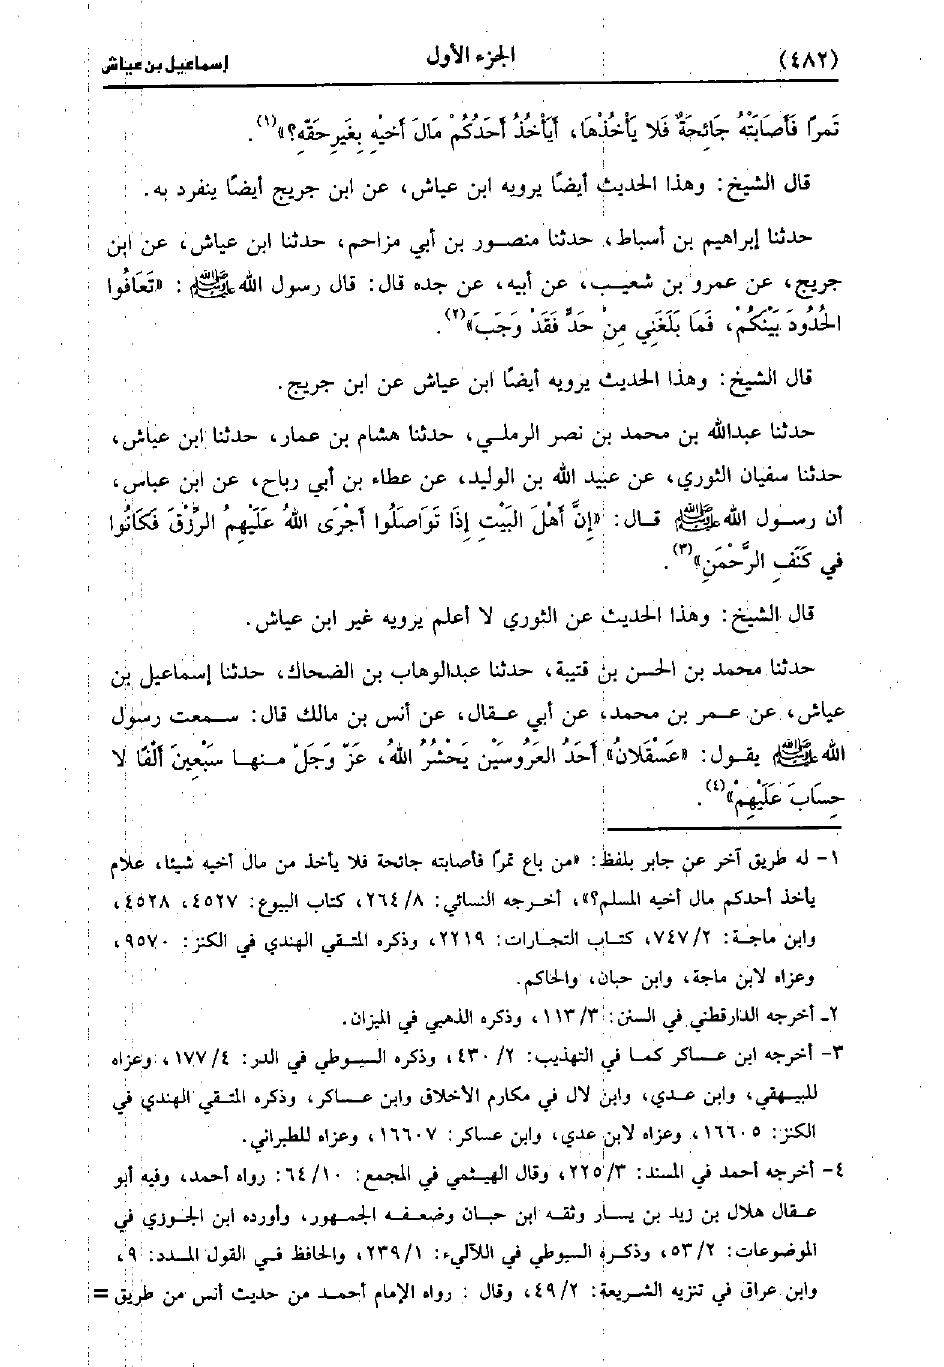 (٤٨٢) الجزء الأول إسماعيل بن عياش
تَمرًا فَأَصَابَتْهُ جَائِحَةٌ فَلا يَأْخُذْهَا، أَيَأْخُذُ أَحَدُكُمْ مَالَ أَخيْهِ بِغَيرِ حَقّهِ؟»(١).
قال الشيخ: وهذا الحديث أيضًا يرويه ابن عياش، عن ابن جريج أيضًا ينفرد به.
حدثنا إبراهيم بن أسباط، حدثنا منصور بن أبي مزاحم، حدثنا ابن عياش، عن ابن
جريج، عن عمرو بن شعيب، عن أبيه، عن جده قال: قال رسول الله ﷺ : «تَعَافُوا
الحُدُودَ بَيْنَكُمْ، فَمَا بَلَغَنِي مِنْ حَدٍّ فَقَدْ وَجَبَ»(٢).
قال الشيخ: وهذا الحديث يرويه أيضًا ابن عياش عن ابن جريج.
حدثنا عبدالله بن محمد بن نصر الرملي، حدثنا هشام بن عمار، حدثنا ابن عياش،
حدثنا سفيان الثوري، عن عبيد الله بن الوليد، عن عطاء بن أبي رباح، عن ابن عباس،
أن رسول الله ﷺ قال: «إِنَّ أَهْلَ البَيْتِ إِذَا تَوَاصَلُوا أَجْرَى اللهُ عَلَيْهِمُ الرِّزْقَ فَكَانُوا
في كَنَفِ الرَّحْمَنِ»(٣).
قال الشيخ: وهذا الحديث عن الثوري لا أعلم يرويه غير ابن عياش.
حدثنا محمد بن الحسن بن قتيبة، حدثنا عبدالوهاب بن الضحاك، حدثنا إسماعيل بن
عياش، عن عمر بن محمد، عن أبي عقال، عن أنس بن مالك قال: سمعت رسول
الله ﷺ يقول: «عَسْقَلانُ» أَحَدُ العَرُوسَيْنِ يَحْشُرُ اللهُ، عَزّ وَجَلّ منها سَبْعِينَ أَلْفًا لا
حِسَابَ عَلَيْهِمْ»(٤).
١- له طريق آخر عن جابر بلفظ: «من باع تمرًا فأصابته جائحة فلا يأخذ من مال أخيه شيئا، علام
يأخذ أحدكم مال أخيه المسلم؟»، أخرجه النسائي: ٢٦٤/٨، كتاب البيوع: ٤٥٢٧، ٤٥٢٨،
وابن ماجة: ٧٤٧/٢، كتاب التجارات: ٢٢١٩، وذكره المتقي الهندي في الكنز: ٩٥٧٠،
وعزاه لابن ماجة، وابن حبان، والحاكم.
٢ـ أخرجه الدارقطني في السنن: ١١٣/٣، وذكره الذهبي في الميزان.
٣- أخرجه ابن عساكر كما في التهذيب: ٤٣٠/٢، وذكره السيوطي في الدر: ١٧٧/٤، وعزاه
للبيهقي، وابن عدي، وابن لال في مكارم الأخلاق وابن عساكر، وذكره المتقي الهندي في
الكنز: ١٦٦٠٥، وعزاه لابن عدي، وابن عساكر: ١٦٦٠٧، وعزاه للطبراني.
٤- أخرجه أحمد في المسند: ٢٢٥/٣، وقال الهيثمي في المجمع: ٦٤/١٠: رواه أحمد، وفيه أبو
عقال هلال بن زيد بن يسار وثقه ابن حبان وضعفه الجمهور، وأورده ابن الجوزي في
الموضوعات: ٥٣/٢، وذكره السيوطي في اللآليء: ٢٣٩/١، والحافظ في القول المسدد: ٩،
وابن عراق في تنزيه الشريعة: ٤٩/٢، وقال : رواه الإمام أحمد من حديث أنس من طريق =